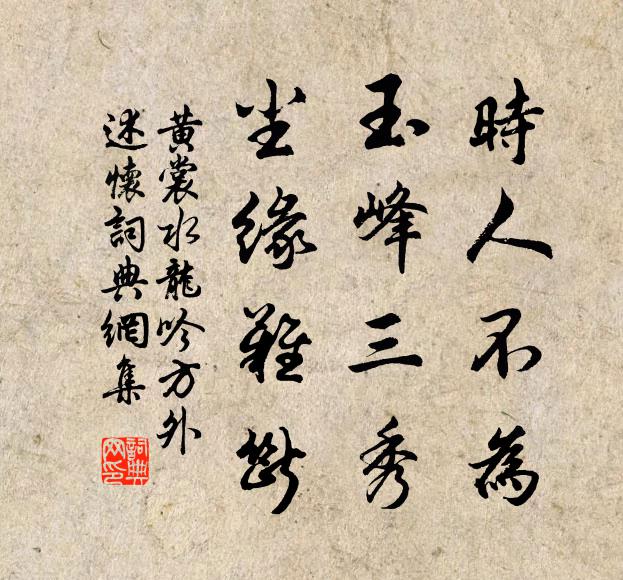 時人不為
玉峰三秀
尘緣難斷
黃裳水龍吟方外
述懷詞典網集
詞典
网印